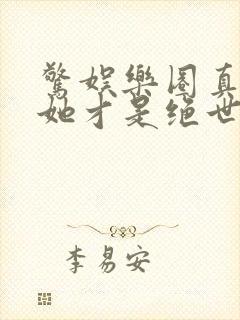 驚娛樂圈真
她才是绝世
李易安